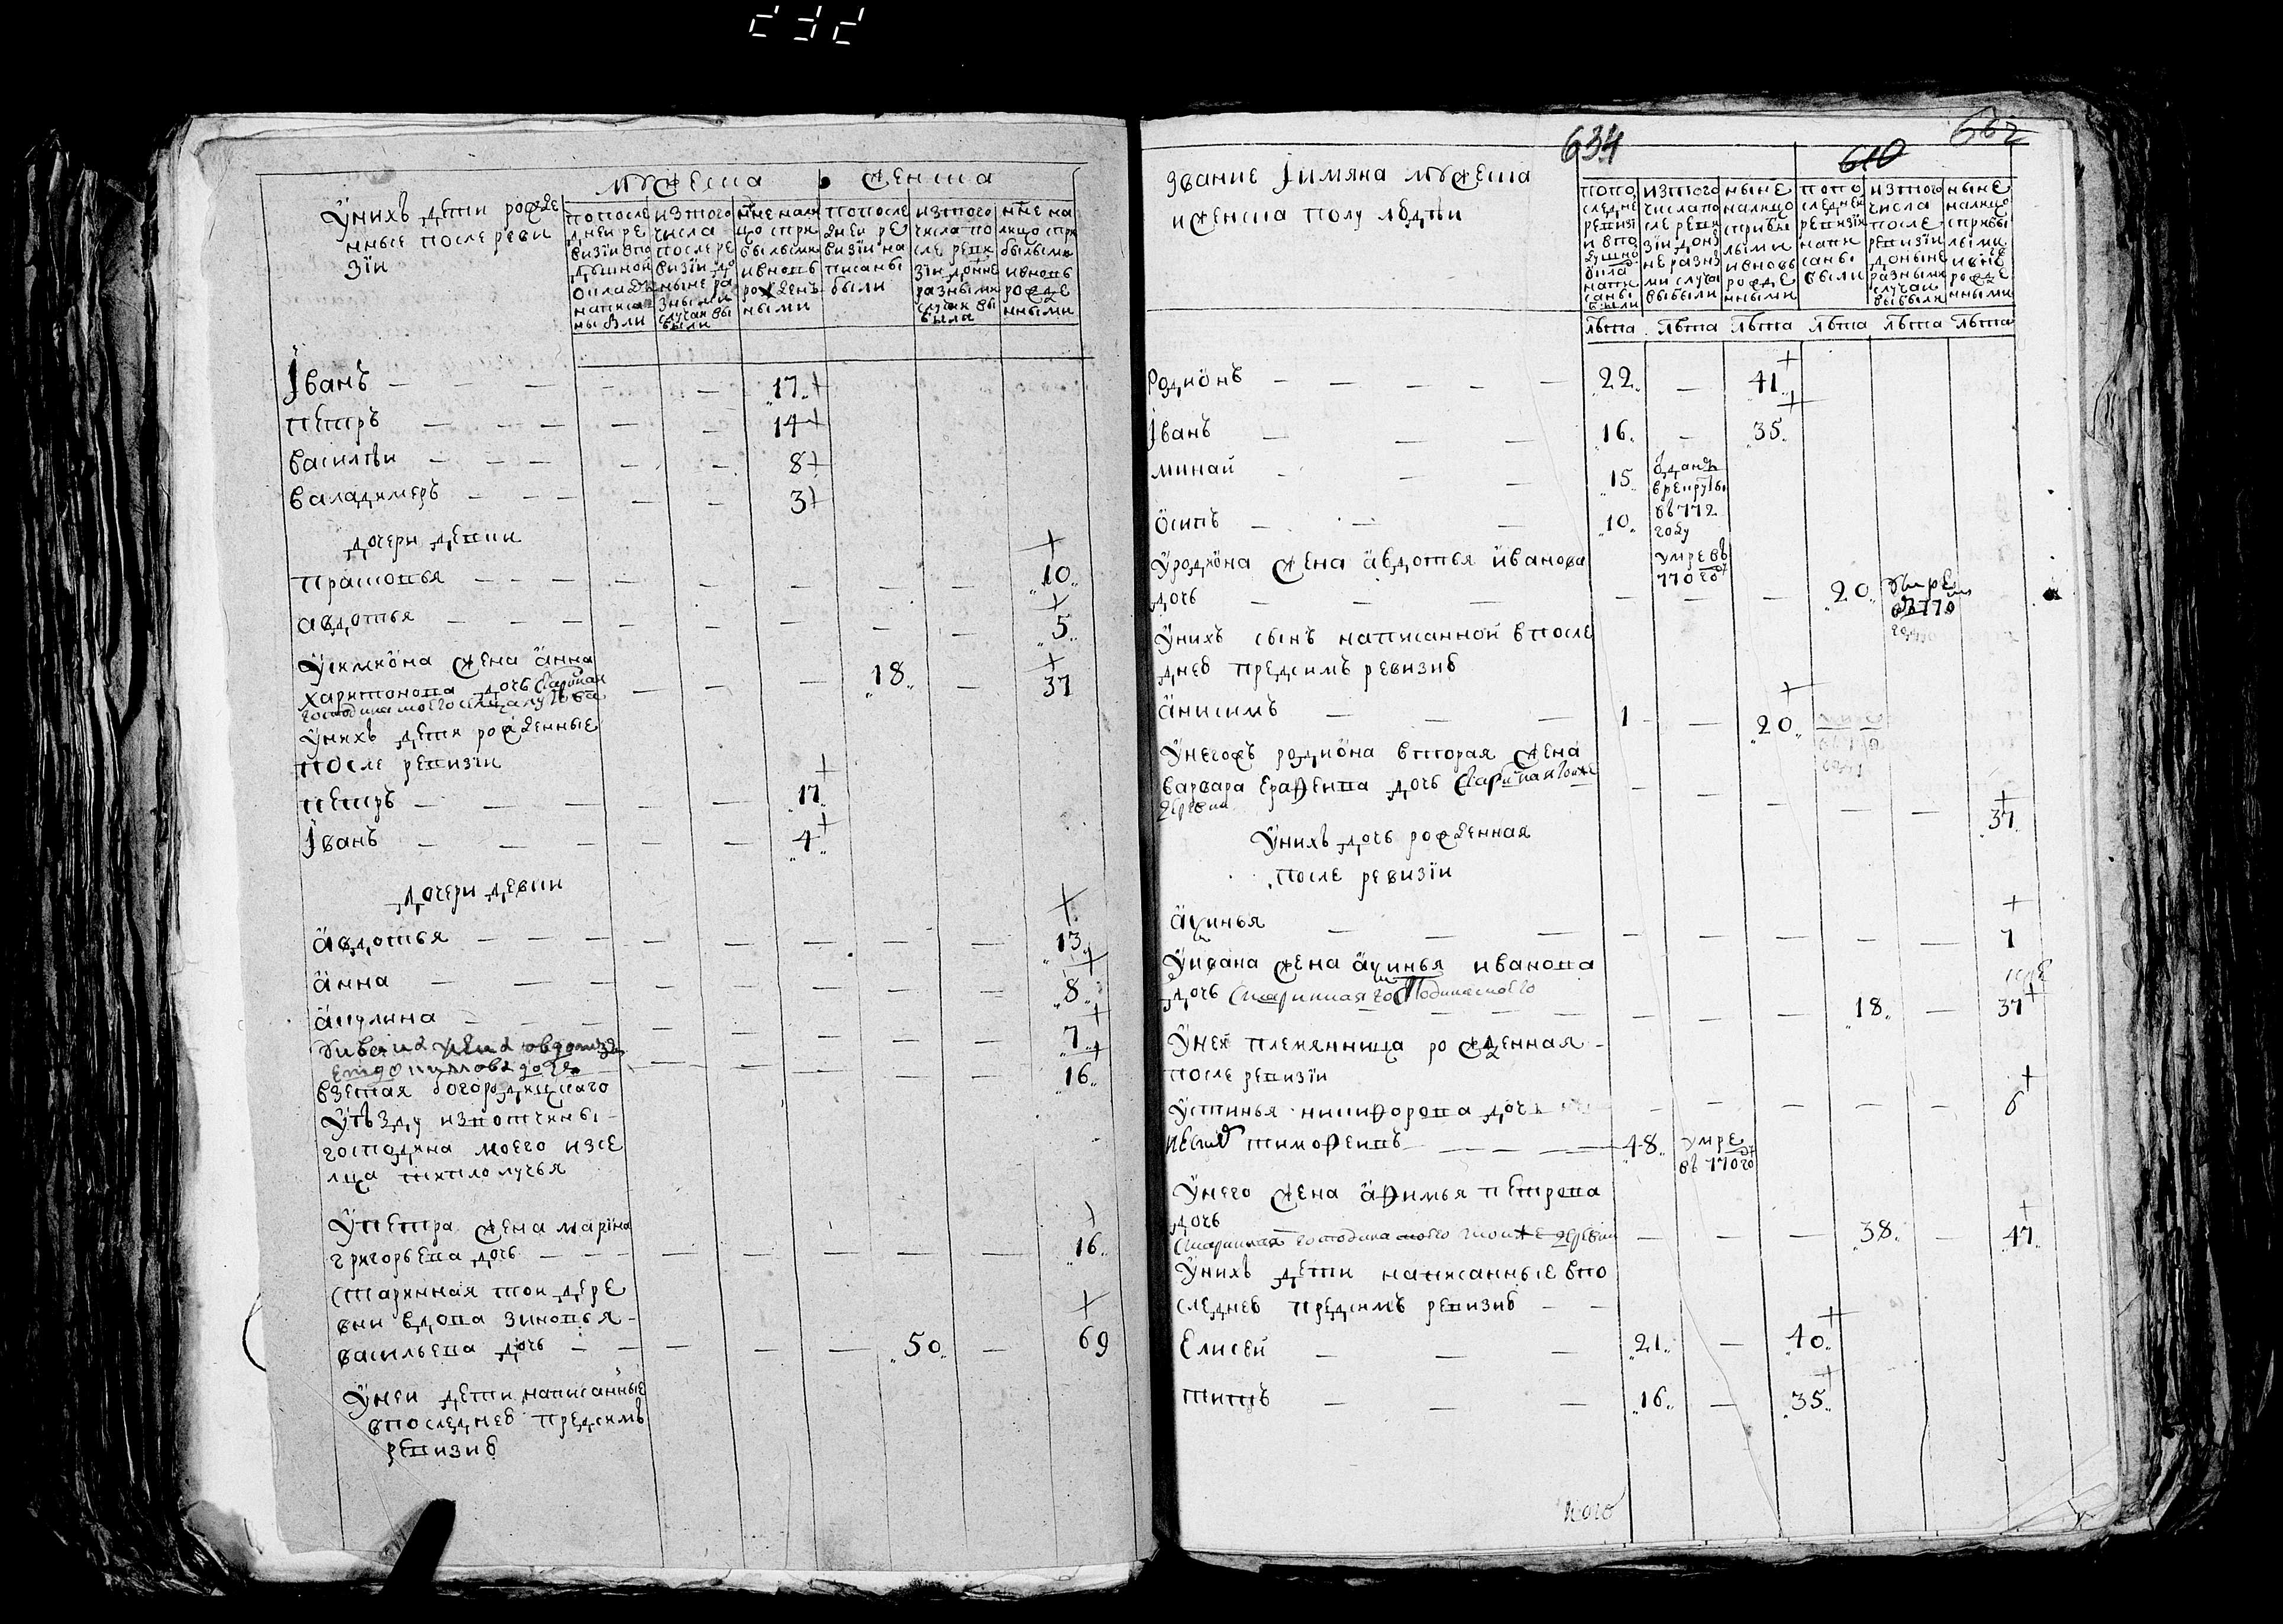 мужеска женска
У нихъ дети рожде
нные после реви
зіи
по после
дней ре
визіи в по
душной
окладъ
написа
ны были
из того
числа
после ре
визіи до
ныне ра
зными
случаи вы
были
ныне нали
цо с при
былыми
и вновь
рожден
ными
по после
дней ре
визіи на
писаны
были
из того
числа по
сле реви
зіи доныне
разными
случаи вы
была
ныне на
лицо с при
былыми
и вновь
рожде
нными
Iванъ — — — — — 17
петръ — — — — — 14
василеи — — — — — 8
валадимеръ — — — — — 3
дочери девки
прасковья — — — — — — — — 10
авдотья — — — — — — — — 5
У симиона жена анна
харитонова дочь
— — — 18 — 37
У нихъ дети рожденные
после ревизіи
петръ — — — — — 17
Iванъ — — — — — 4
дочери девки
Авдотья — — — — — — — — 13
Анна — — — — — — — — 8
Акулина — — — — — — — — 7
— — — — — 16
взетая богородицкаго
уѣзду из вотчины
господина моего из се
лца
У петра жена марина
григорьева дочь — — — — — — — 16
старинная тои дере
вни вдова зиновья
васильева дочь — — — — — 50 — 69
У неи дети написанные
в последнеѣ пред симъ
ревизиѣ
634 610 662
звание I имяна мужеска
и женска полу людѣи
по по
следне
ревизі
и в по
душно
окла
напи
саны
были
из того
числа по
сле реви
зіи до ны
не разны
ми случаи
выбыли
ныне
налицо
с прибы
лыми
и вновь
рожде
нными
по по
следней
ревизіи
напи
саны
были
из того
числа
после
ревизіи
доныне
разными
случаи
выбыли
ныне
налицо
с прибы
лыми
и вно
рожде
нными
лѣта лѣта лѣта лѣта лѣта лѣта
Родионъ — — — — — 22 — 41
Iванъ — — — 16 — 35
минай — — 15 одданъ
в рекруты
въ 772
году
Осипъ — — — 10 умре въ
770 год
У родиона жена Авдотья Иванова
дочь — — — — — — 20 умре
въ 770
году
У нихъ сынъ написанной в после
днеѣ пред симъ ревизиѣ
Анисимъ — — — 1 — 20
У негожъ родиона вторая жена
варвара ерафеева дочь старинная тоиже
деревни — — — — — 37
У нихъ дочь рожденная
после ревизіи
Аксинья — — — — — — — — 7
У ивана жена Аксинья иванова
дочь старинная господина моего
— — — 18 — 37
У неи племянница рожденная
после ревизіи
Устинья никифорова дочь — — — — — 6
тимофеивъ — — — — 48 умре
въ 770 год
У него жена Афимья петрова
дочь
старинная господина моего тоиже деревни — — — 38 — 47
У нихъ дети написанные в по
следнеѣ пред симъ ревизиѣ — —
Елисей — — — 21 — 40
титъ — — — 16 — 35